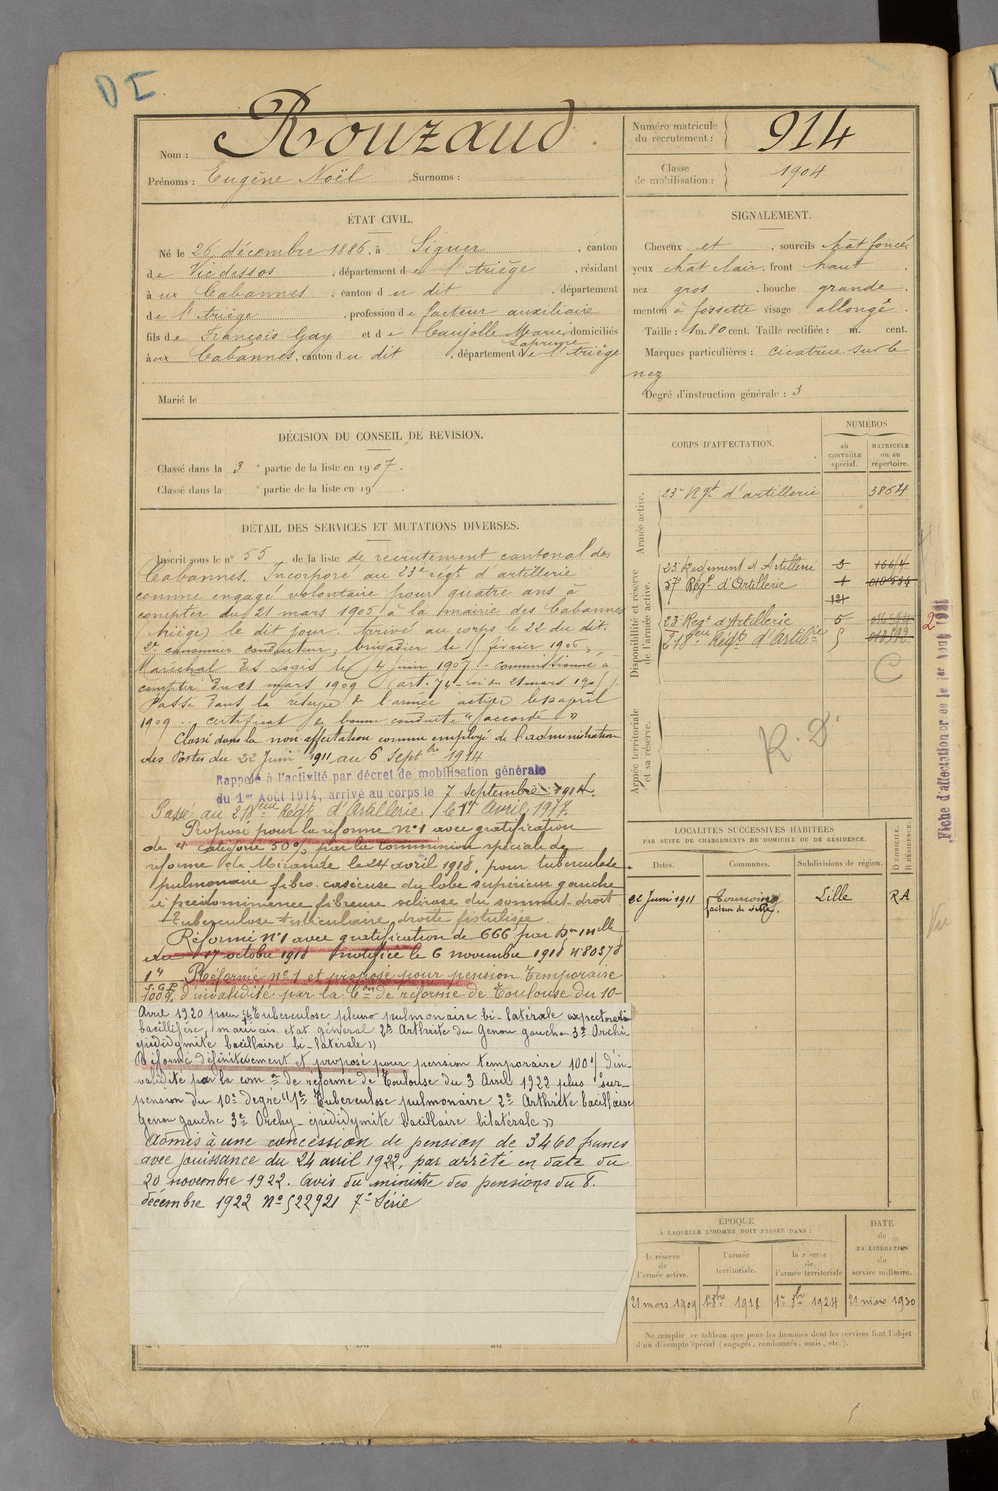 D I
Nom : Rouzaud
Prénoms : Eugène Noël Surnoms :
Numéro matricule du recrutement : 914
Classe de mobilisation : 1904
ÉTAT CIVIL.
Né le 26 décembre 1886, à Siguer, canton
de Vicdessos, département de l'Ariège, résidant
à ux Cabannes, canton du dit, département
de l'Ariège, profession de facteur auxiliaire
fils de François Gay et de Caujolle Marie domiciliés
à aux Cabannes, canton du dit, département de l'Ariège
Marié le
SIGNALEMENT.
Cheveux et, sourcils chat foncé
yeux chat clair, front haut
nez gros, bouche grande
menton à fossette visage allongé
Taille : 1 m. 80 cent. Taille rectifiée : m. cent.
Marques particulières : cicatrice sur le
nez
Degré d'instruction générale : 3
DÉCISION DU CONSEIL DE REVISION.
Classé dans la 3e partie de la liste en 1907.
Classé dans la e partie de la liste en 19
DÉTAIL DES SERVICES ET MUTATIONS DIVERSES.
Inscrit sous le n° 55 de la liste de recrutement cantonal des
Cabannes. Incorporé au 23e régt d'artillerie
comme engagé volontaire pour quatre ans à
compter du 21 mars 1905 à la mairie des Cabannes
(Ariège) le dit jour. Arrivé au corps le 22 du dit.
2e canonnier conducteur, brigadier le février 1906,
Maréchal des Logis le 4 juin 1907 commissionné à
compter du 21 mars 1909 (art. 74 - Loi du 21 mars 1905).
Passé dans la réserve de l'armée active le avril
1909. certificat de bonne conduite "accordé"
Classé dans la non affectation comme employé de l'administration
des Postes du 22 Juin 1911 au 6 Septbre 1914
Rappelé à l'activité par décret de mobilisation générale
du 1er Août 1914, arrivé au corps le 7 septembre 1914.
Passé au 218eme Régt d'Artillerie le 1er Avril 1917.
Proposé pour la réforme n°1 avec gratification
de 4 catégorie 50% par la commission spéciale de
réforme de Mirande le 24 avril 1918, pour tuberculose
pulmonaire fibro caséeuse du lobe supérieur gauche
à prédominence fibreuse sclérose du sommet droit
Tuberculose testiculaire droite fistulisée.
Réformé N°1 avec gratification de 666 par Don mlle
du 17 octobre 1918 notifiée le 6 novembre 1918
Réformé n°1 et proposé pour pension temporaire
100% d'invalidité par la Con de réforme de Toulouse du 10
Avril 1920 pour Tuberculose pleuro pulmonaire bi-latérale expectoration
bacillifère, mauvais état général 2° Arthrite du Genou gauche 3° Orchi
épididymite bacillaire bi-latérale »
Réformé définitivement et proposé pour pension temporaire 100% d'in-
validité par la comon de réforme de Toulouse du 3 Avril 1922 plus sur-
pension du 10e degré "1° Tuberculose pulmonaire 2° Arthrite bacillaire
Genou gauche 3° Orchy-épididymite bacillaire bilatérale »
Admis à une concession de pension de 3460 francs
avec jouissance du 24 avril 1922, par arrêté en date du
20 novembre 1922. Avis du ministre des pensions du 8.
décembre 1922 N° 522921 7e Série
CORPS D'AFFECTATION.
NUMÉROS
au CONTRÔLE spécial.
MATRICULE ou au répertoire.
Armée active.
23e Régt d'artillerie 3864
Disponibilité et réserve de l'armée active.
23e Régiment d'Artillerie 5
57e Régt d'Artillerie
23e Régt d'Artillerie 5
218eme Régt d'Artillie 5
C
Armée territoriale et sa réserve.
R. D
Fiche d'affectation
LOCALITÉS SUCCESSIVES HABITÉES
PAR SUITE DE CHANGEMENTS DE DOMICILE OU DE RÉSIDENCE.
Dates. Communes. Subdivisions de région. D DOMICILE. R RÉSIDENCE.
22 Juin 1911 Tourcoing Lille RA
facteur de villes.
Vu
ÉPOQUE
À LAQUELLE L'HOMME DOIT PASSER DANS :
la réserve de l'armée active. l'armée territoriale. la réserve de l'armée territoriale
DATE de LA LIBÉRATION du service militaire.
21 mars 1909 1er 8bre 1918 1er 8bre 1924 21 mars 1930
Ne remplir ce tableau que pour les hommes dont les services font l'objet
d'un décompte spécial (engagés, condamnés, omis, etc.).